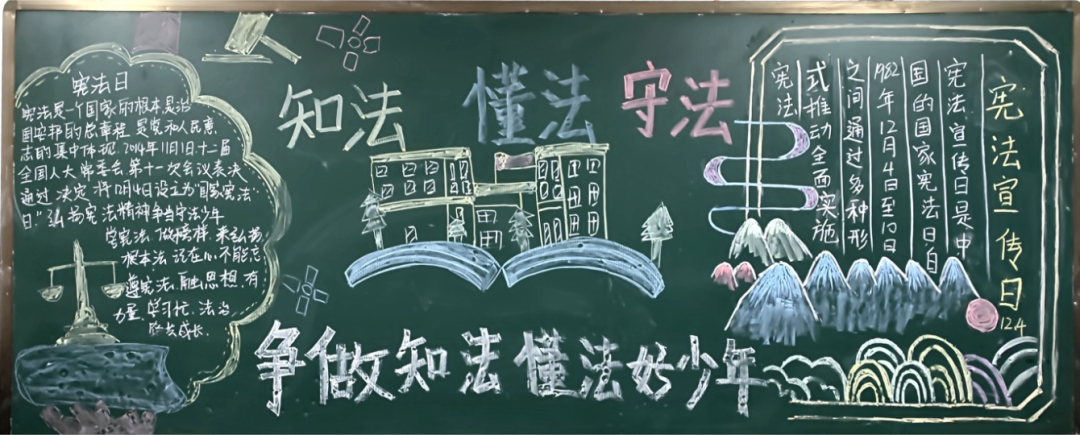 知法 懂法 守法
宪法日
宪法是一个国家的根本是治
国安邦的总章程 是党和人民意
志的集中体现.2014年11月1日十二届
全国人大常委会第十一次会议表决
通过 决定 将12月4日设立为"国家宪法"
日."弘扬宪法精神争当守法少年
学宪法 做榜样 来弘扬
根本法 记在心 不能忘
遵宪法,融思想,有
力量 学习忙.法治
共成长.
争做知法懂法好少年
宪法宣传日
12.4
宪法宣传日是中
国的国家宪法日自
1982年12月4日至10日
之间通过多种形
式推动全面实施
宪法